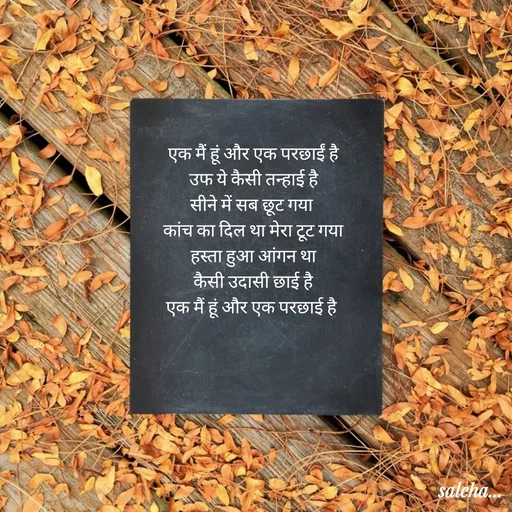 एक मैं हूं और एक परछाईं है
उफ ये कैसी तन्हाई है
सीने में सब छूट गया
कांच का दिल था मेरा टूट गया
हस्ता हुआ आंगन था
कैसी उदासी छाई है
एक मैं हूं और एक परछाई है
saleha...